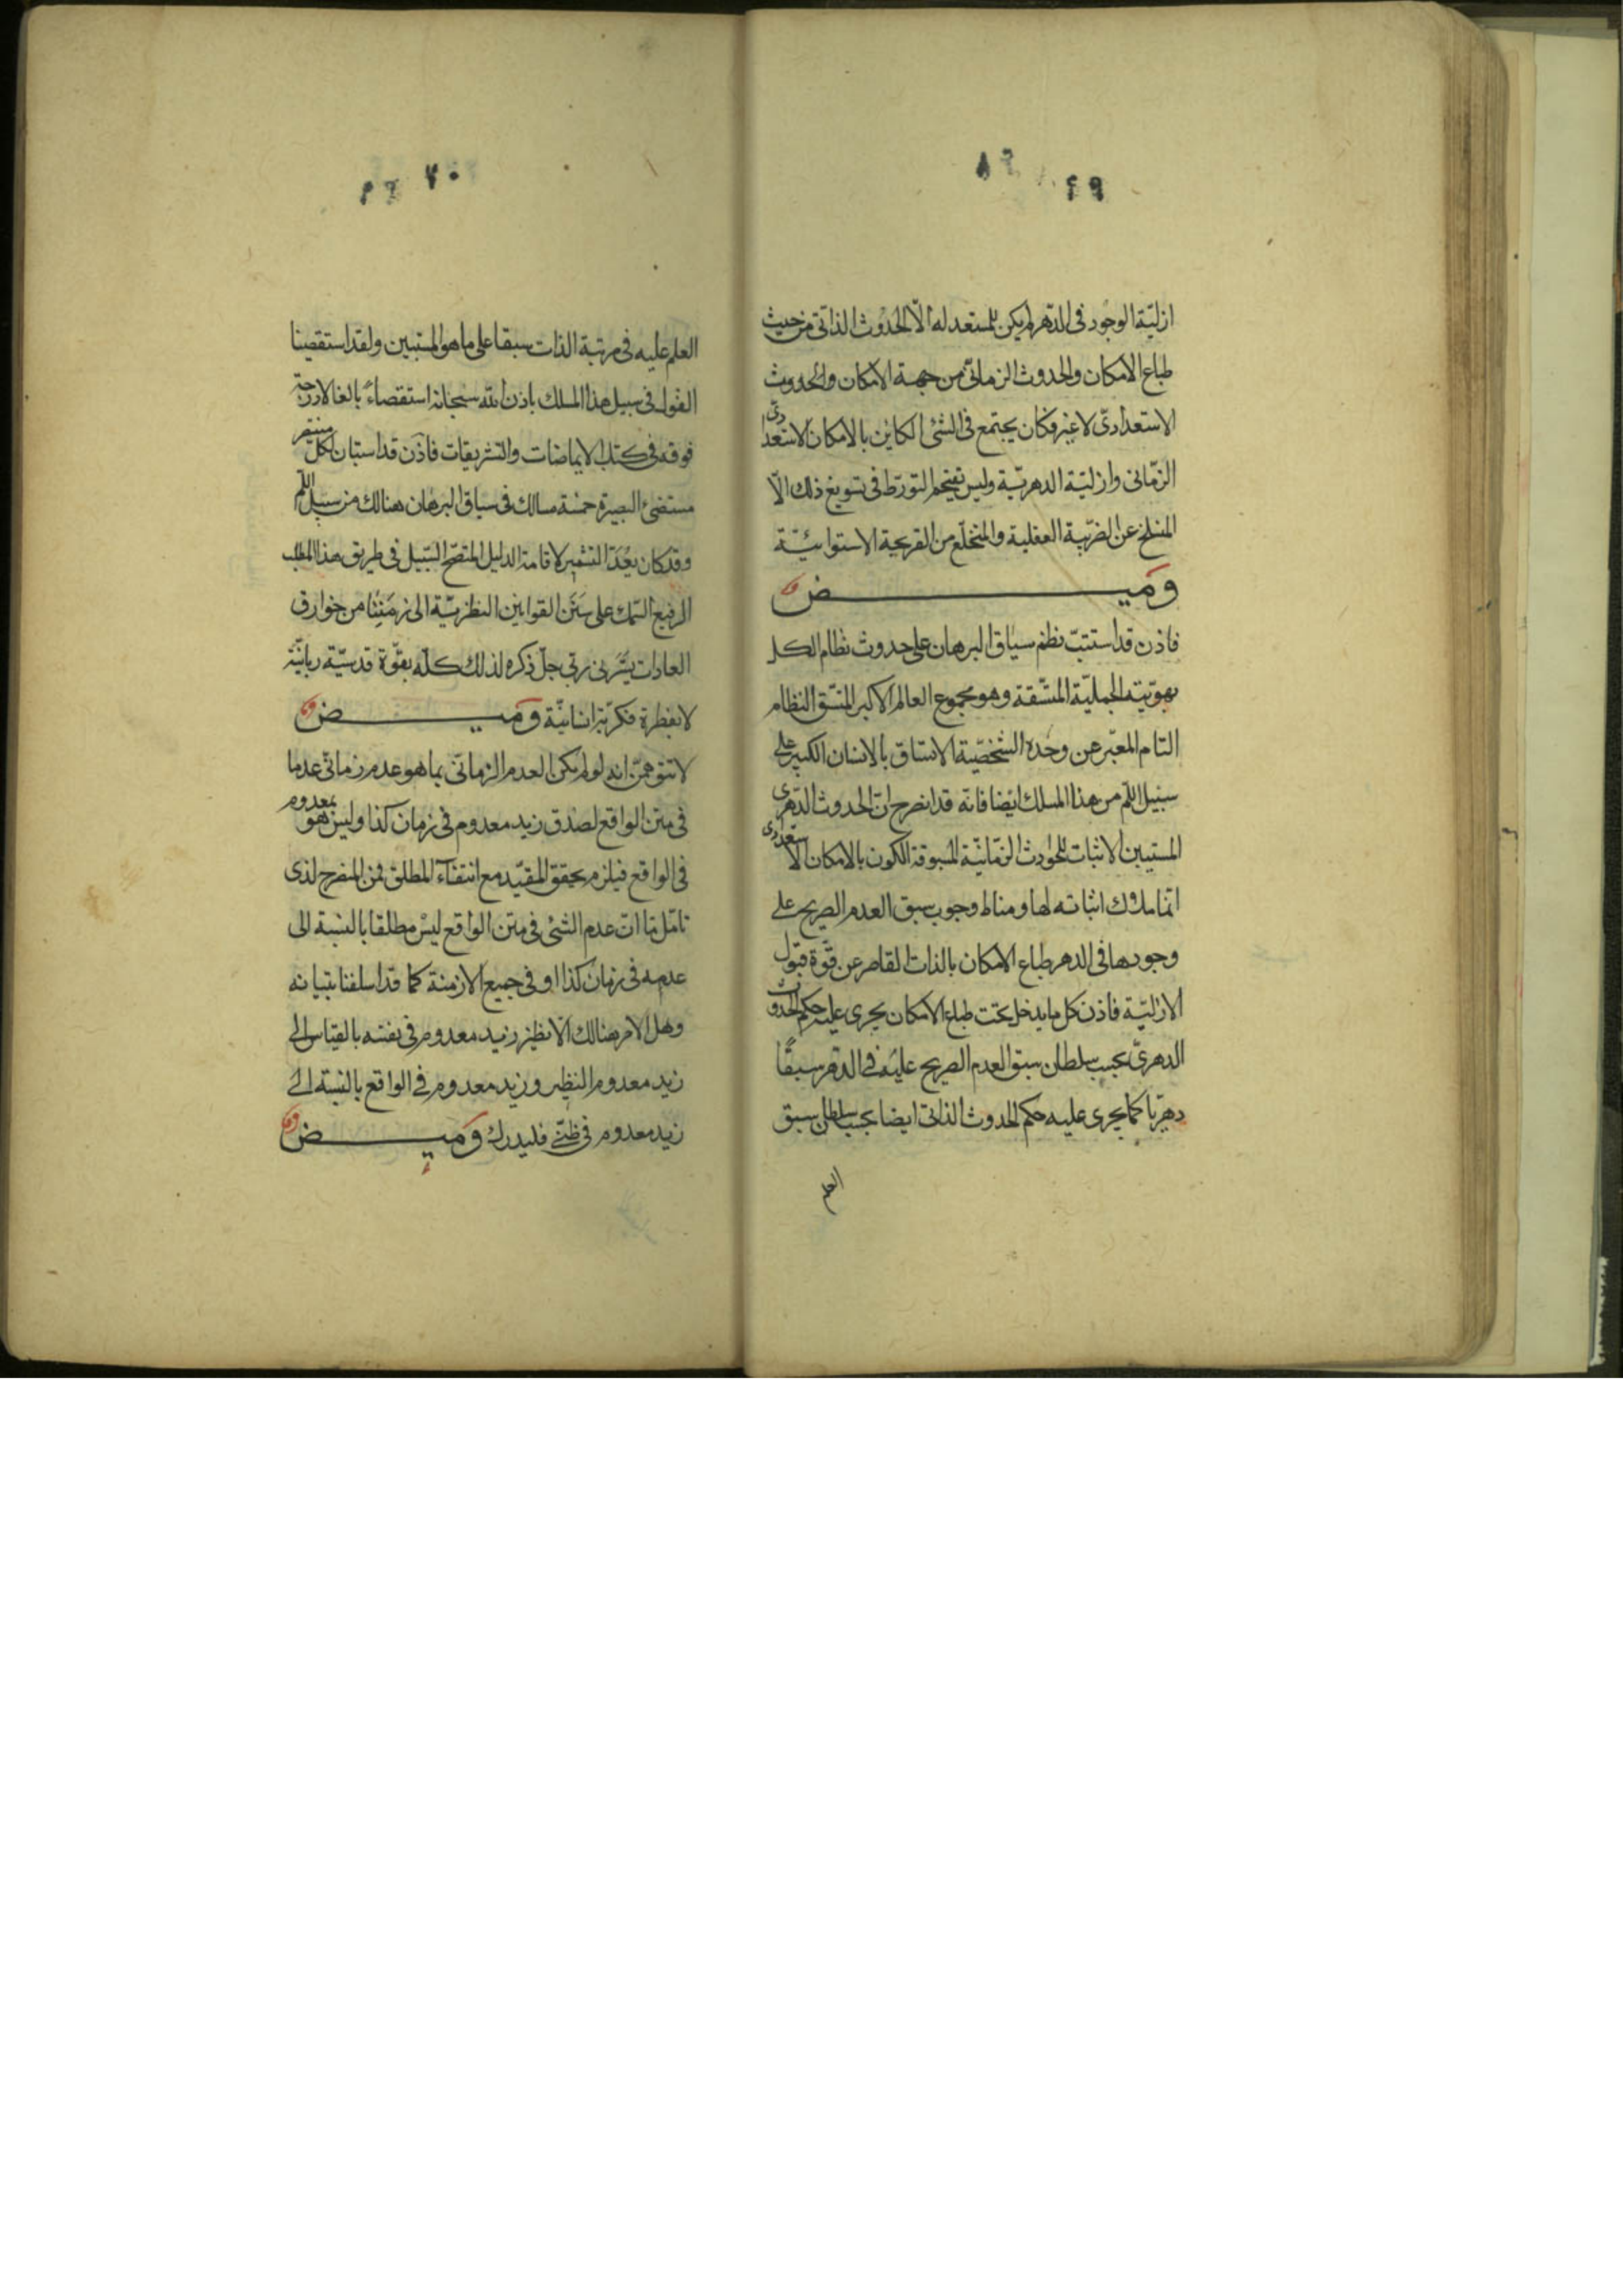 ازليّة الوجود في الدّهر لم يكن للمستعد له الّا الحدوث الذاتيّ من حيث
طباع الامكان والحدوث الزمانيّ من جهة الامكان والحدوث
الاستعداديّ لا غير فكان يجتمع في الشئ الكاين بالامكان الاستعدادىّ
الزمانى وازليّة الدهريّة وليس تقتحم التورّط في تسويغ ذلك الّا
المنسلخ عن الضريبة العقلية والمتخلّع من القريحة الاستوائيّة
وميض
فاذن قد استتبّ نظم سياق البرهان على حدوث نظام الكل
بهويّته الجمليّة المتّسقة وهو مجموع العالم الاكبر المتّسق النظام
التام المعبّر عن وحدة الشخصّية الاتساق بالانسان الكبير على
سبيل اللّم من هذا المسلك ايضا فانّه قد انصرح انّ الحدوث الدّهرى
المستبين الاثبات للحوادث الزمانيّة المسبوقة الكون بالامكان الاستعدادى
انّما ملاك اثباته لها ومناط وجوب سبق العدم الصريح على
وجودها في الدهر طباع الامكان بالذات القاصر عن قوّة قبول
الازليّة فاذن كل ما يدخل تحت طباع الامكان يجرى عليه حكم الحدوث
الدهرىّ بحسب سلطان سبق العدم الصريح عليه في الدّهر سبقًا
دهريّا كما يجرى عليه حكم الحدوث الذاتى ايضا بحسب سلطان سبق
العلم
العلم عليه في مرتبة الذات سبقا على ما هو المستبين ولقد استقصينا
القول في سبيل هذا المسلك باذن الله سبحانه استقصاءً بالغا لا درجة
فوقه في كتاب الايماضات والتشريقات فاذن قد استبان لكلّ مستبصر
مستضئ البصيرة خمسة مسالك في سياق البرهان هنالك من سبيل اللّم
وقد كان يعدّ التشمير لاقامة الدليل المتضح السّبيل في طريق هذا المطلب
الرفيع السّمك على سَنَن القوانين النظريّة الى زمننا من خوارق
العادات يسّرنى ربّى جلّ ذكره لذلك كلّه بقوّة قدسيّة ربانيّة
لا بفطرة فكريّة انسانيّة وميض
لا تتوهمنّ انه لو لم يكن العدم الزمانىّ بما هو عدم زمانىّ عدما
في متن الواقع لصدق زيد معدوم في زمان كذا وليس هو بمعدوم
في الواقع فيلزم تحقق المقيّد مع انتفاء المطلق فمن المنصرح لذى
تامّل ما انّ عدم الشئ في متن الواقع ليس مطلقا بالنسبة الى
عدمه في زمان كذا او في جميع الازمنة كما قد اسلفنا تبيانه
وهل الامر هنالك الّا نظير زيد معدوم في نفسه بالقياس الى
زيد معدوم النظير وزيد معدوم في الواقع بالنسبة الى
زيد معدوم في ظنّى فليدرك وميض